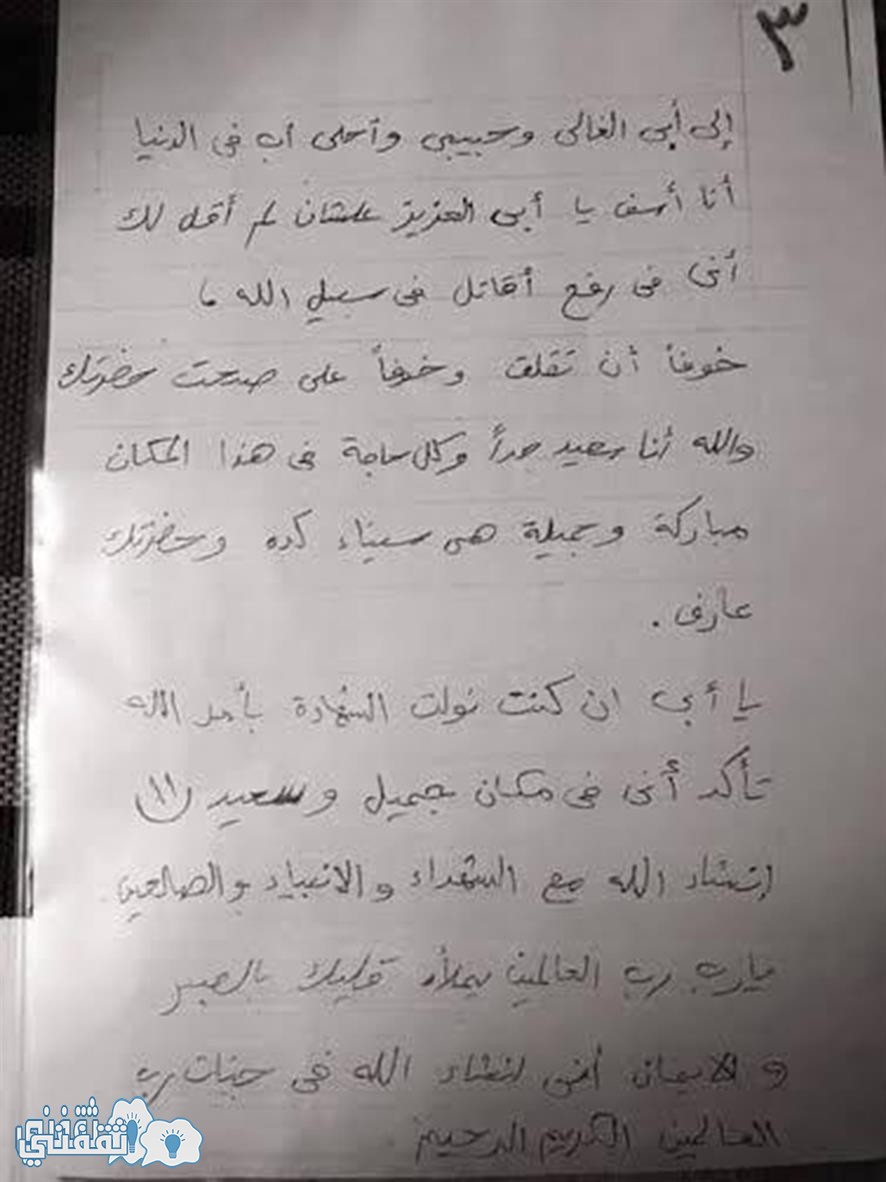 ٣
إلى أبى الغالى وحبيبى وأحلى أب فى الدنيا
أنا أسف يا أبى العزيز علشان لم أقل لك
أنى فى رفع أقاتل فى سبيل الله ،
خوفاً أن تقلق وخوفاً على صحت حضرتك
والله أنا سعيد جداً وكل حاجة فى هذا المكان
مباركة وجميلة هى سيناء كده وحضرتك
عارف .
يا أبى ان كنت نولت الشهادة بأمر الله
تأكد أنى فى مكان جميل وسعيد (١١)
إنشاء الله مع الشهداء والانبياء والصالحين
يارب رب العالمين يملأ قلبك بالصبر
والايمان أنى انشاء الله فى جنات رب
العالمين الكريم الرحيم
ثقفني